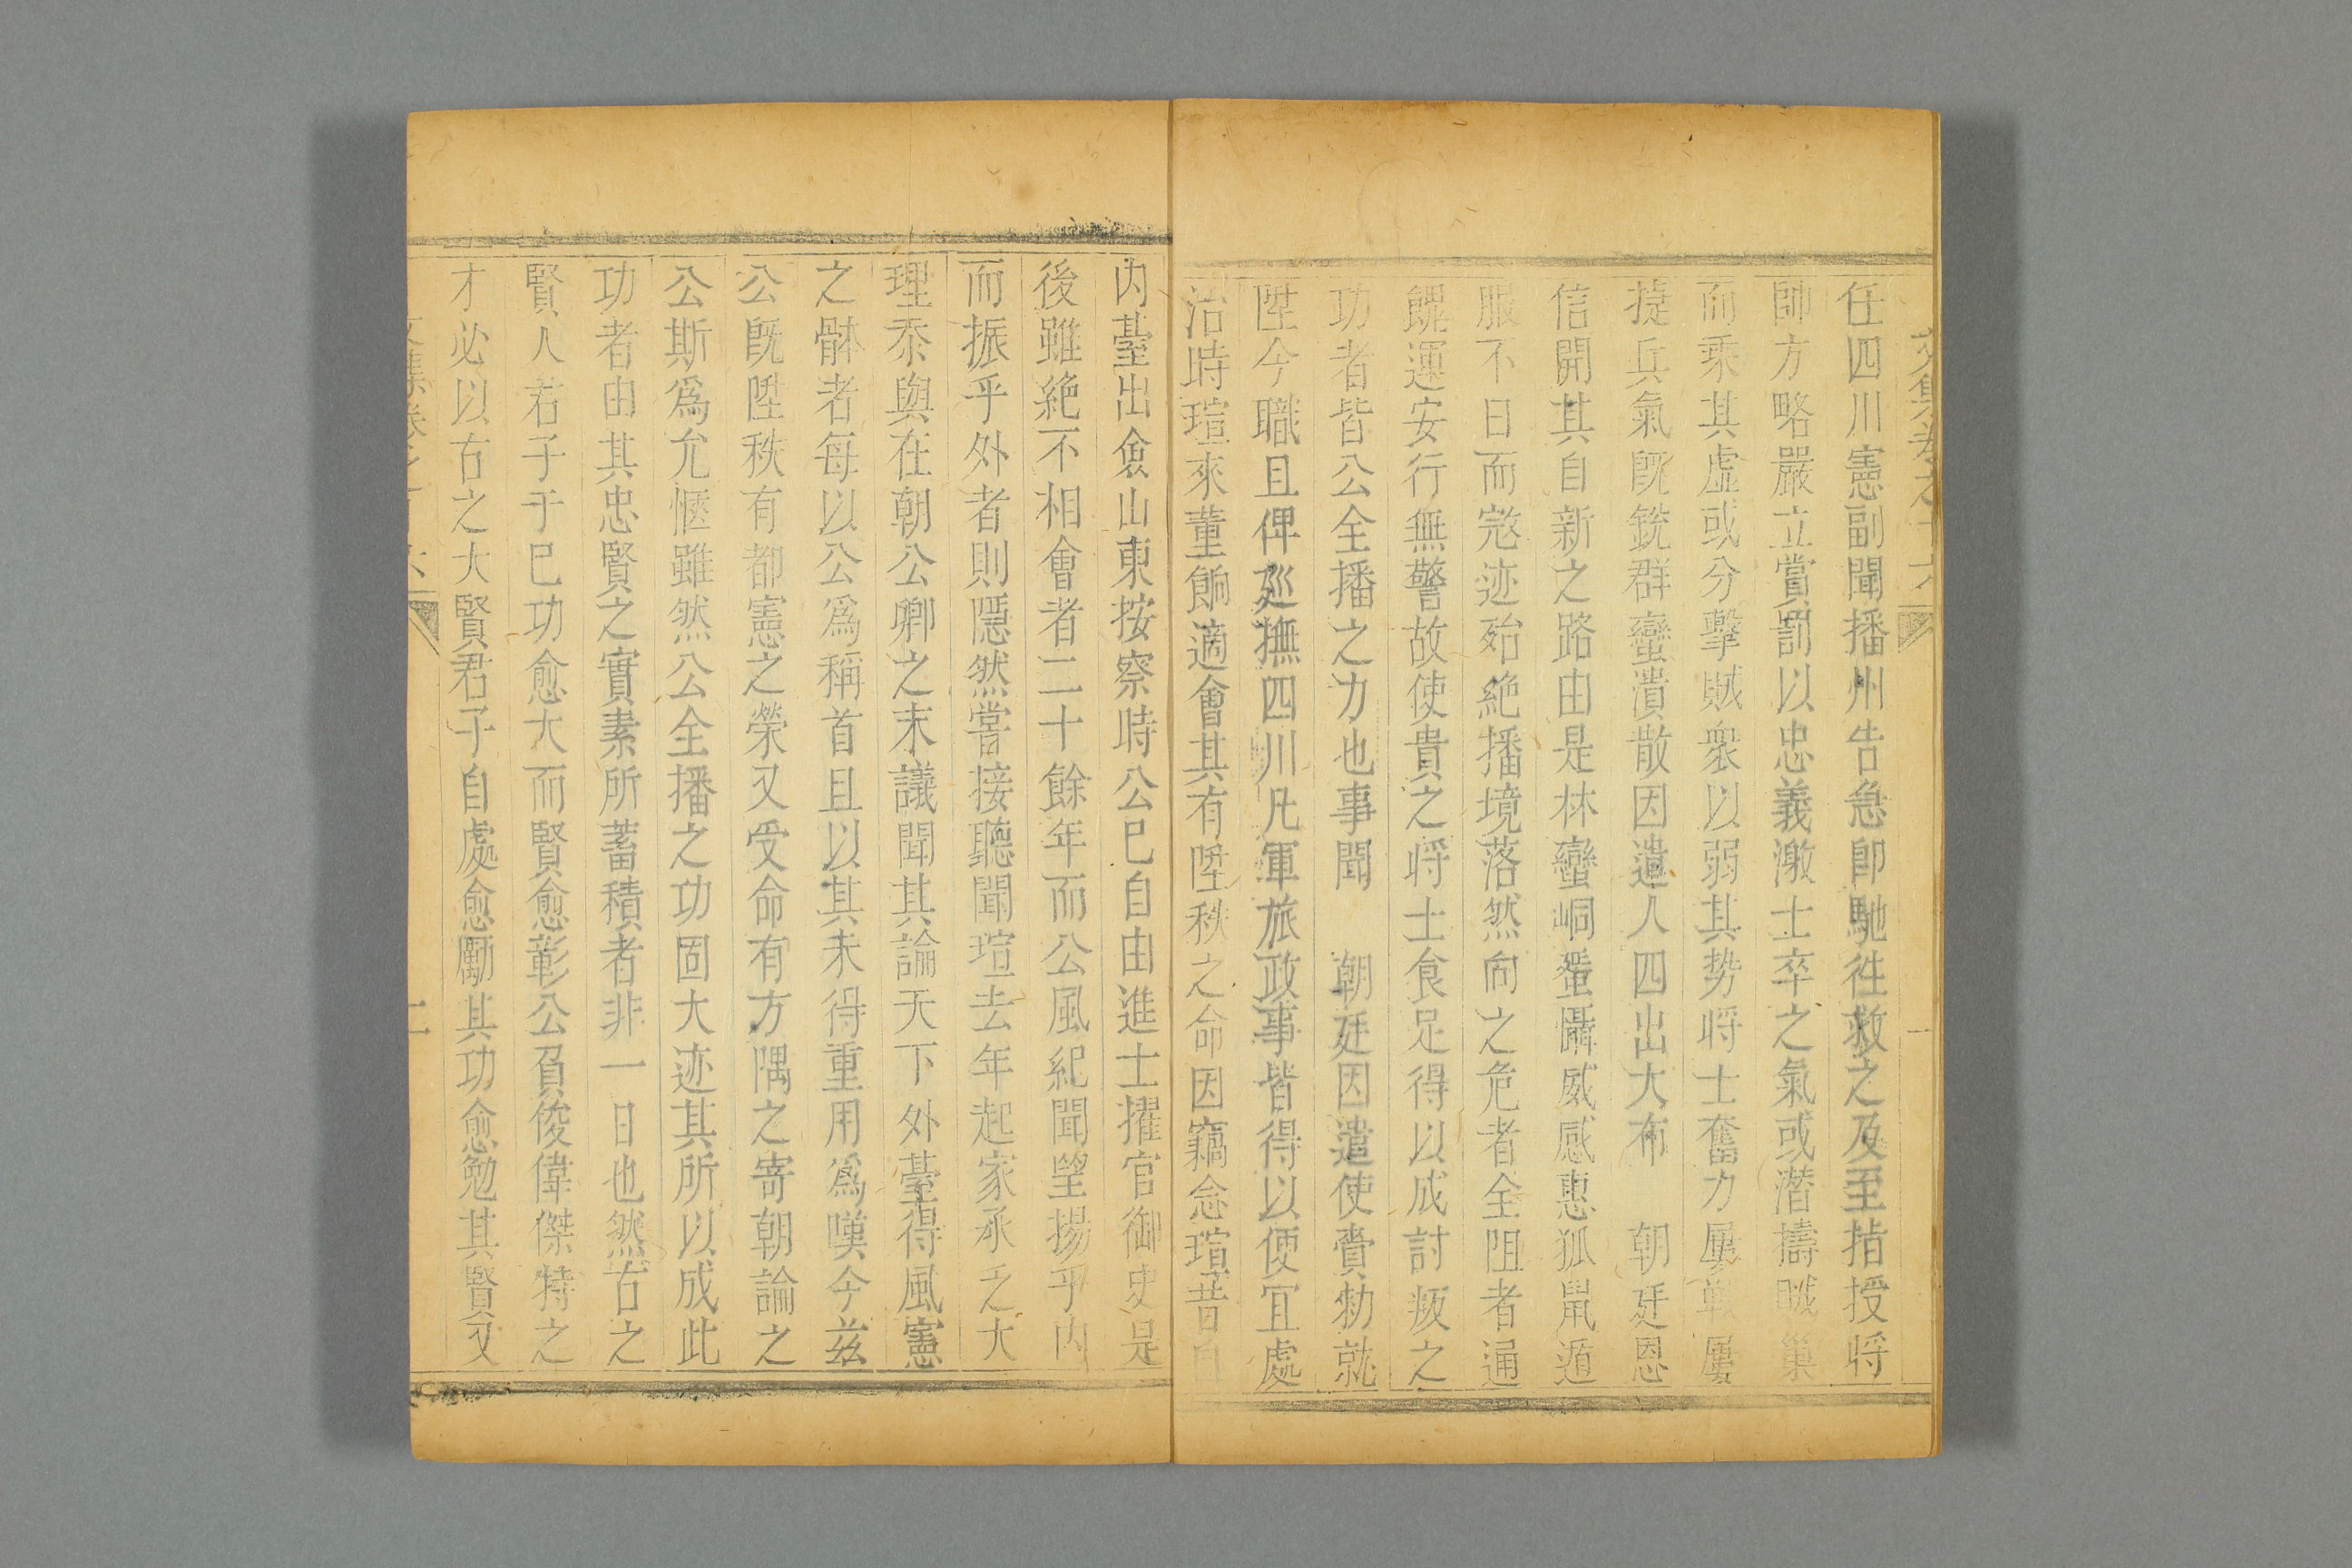 任四川憲副聞播州告急即馳徃救之及至指授将
帥方略嚴立賞罰以忠義激士卒之氣或潜擣賊巢
而乘其虚或分擊賊衆以弱其势将士奮力屢戰屢
捷兵氣既銳群蠻潰散因遣人四出大布　朝廷恩
信開其自新之路由是林蠻峒蜑懾威感惠狐鼠遁
服不日而㓂迹殆絶播境落然向之危者全阻者通
餽運安行無警故使貴之将士食足得以成討叛之
功者皆公全播之力也事聞　朝廷因遣使賫勑就
陞今職且俾廵撫四川凡軍旅政事皆得以便宜處
治時瑄來董餉適會其有陞秩之命因竊念瑄昔自
内臺出僉山東按察時公巳自由進士擢官御史是
後雖絶不相會者二十餘年而公風紀聞望揚乎内
而振乎外者則隱然甞接聽聞瑄去年起家承乏大
理忝與在朝公卿之末議聞其論天下外臺得風憲
之骵者每以公爲稱首且以其未得重用爲嘆今兹
公既陞秩有都憲之榮又受命有方隅之寄朝論之
公斯爲允愜雖然公全播之功固大迹其所以成此
功者由其忠賢之實素所蓄積者非一日也然古之
賢人君子于巳功愈大而賢愈彰公負俊偉傑特之
才必以古之大賢君子自處愈勵其功愈勉其賢又
文集卷之十六
二